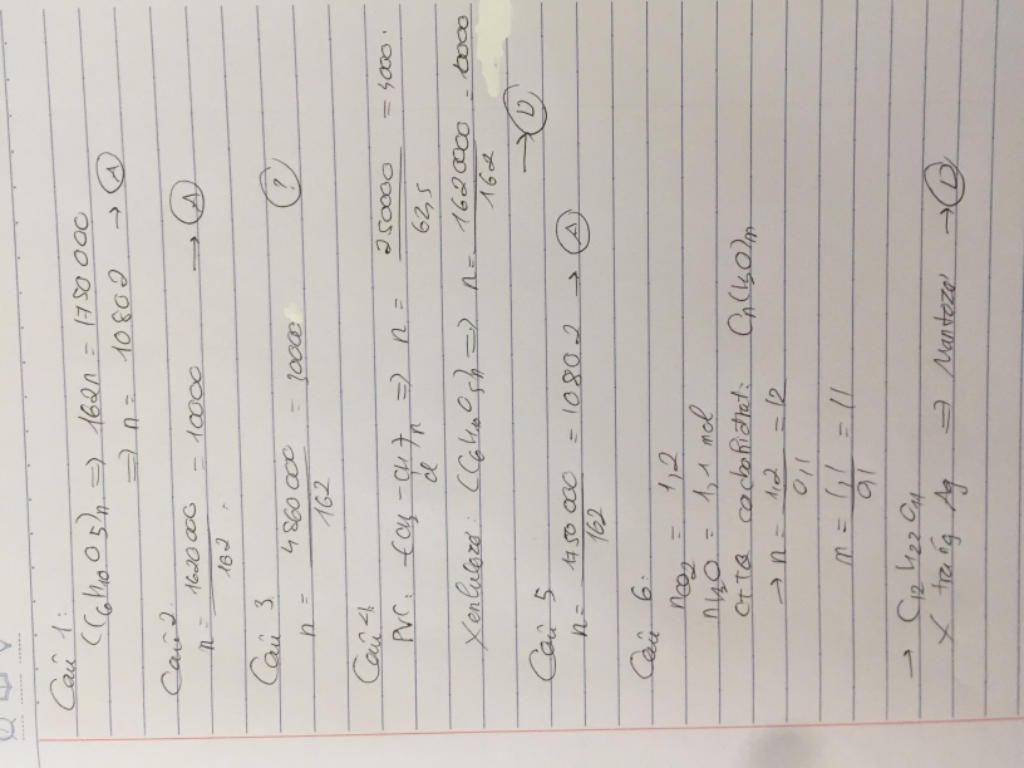 Câu 1:
(C6H10O5)n => 162n = 1750000
=> n = 10802 → (A)
Câu 2
n = 1620000/162 = 10000 → (A)
Câu 3
n = 4860000/162 = 30000 (?)
Câu 4
PVC: -(CH2-CH)n => n = 250000/62,5 = 4000.
cl
Xenlulozơ: (C6H10O5)n => n = 1620000/162 = 10000
→ (D)
Câu 5
n = 1750000/162 = 10802 → (A)
Câu 6:
nCO2 = 1,2
nH2O = 1,1 mol
CTTQ cacbohidrat: Cn(H2O)m
→ n = 1,2/0,1 = 12
m = 1,1/0,1 = 11
→ C12H22O11
X tráng Ag => Mantozơ → (D)